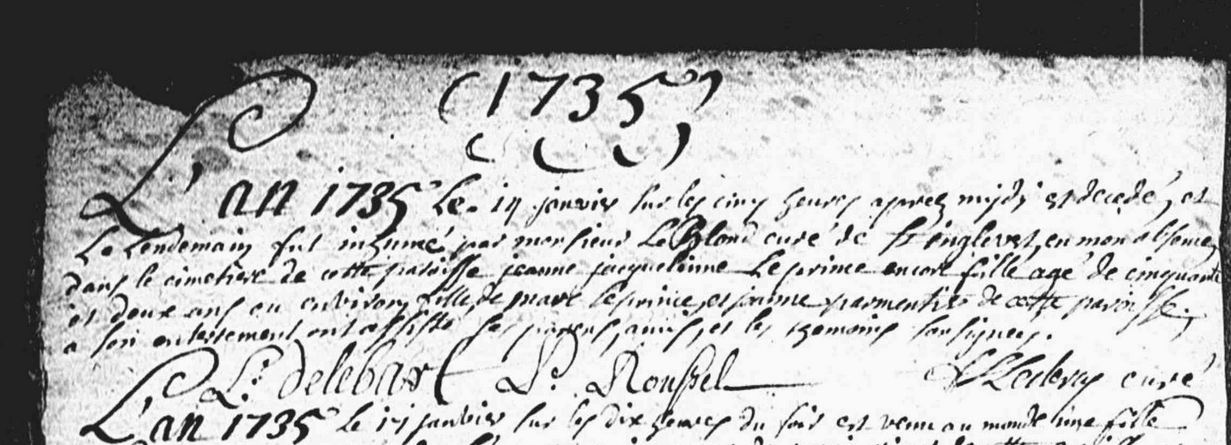 1735
L'an 1735 le 14 janvier sur les cinq heures apres mydi est decedé, et
le lendemain fut inhumé par monsieur LeBlond curé de St inglevert, en mon absence
dans le cimetiere de cette paroisse jeanne jacqueline Leprince encore fille agé de cinquante
et deux ans ou environ fille de marc leprince, et jeanne parmentier de cette paroisse,
a son enterrement ont assisté ses parens, amis, et les themoins soussignes.
L. delebar P. Roussel curé
L'an 1735 le 17 janvier sur les dix heures du soir est venu au monde une fille